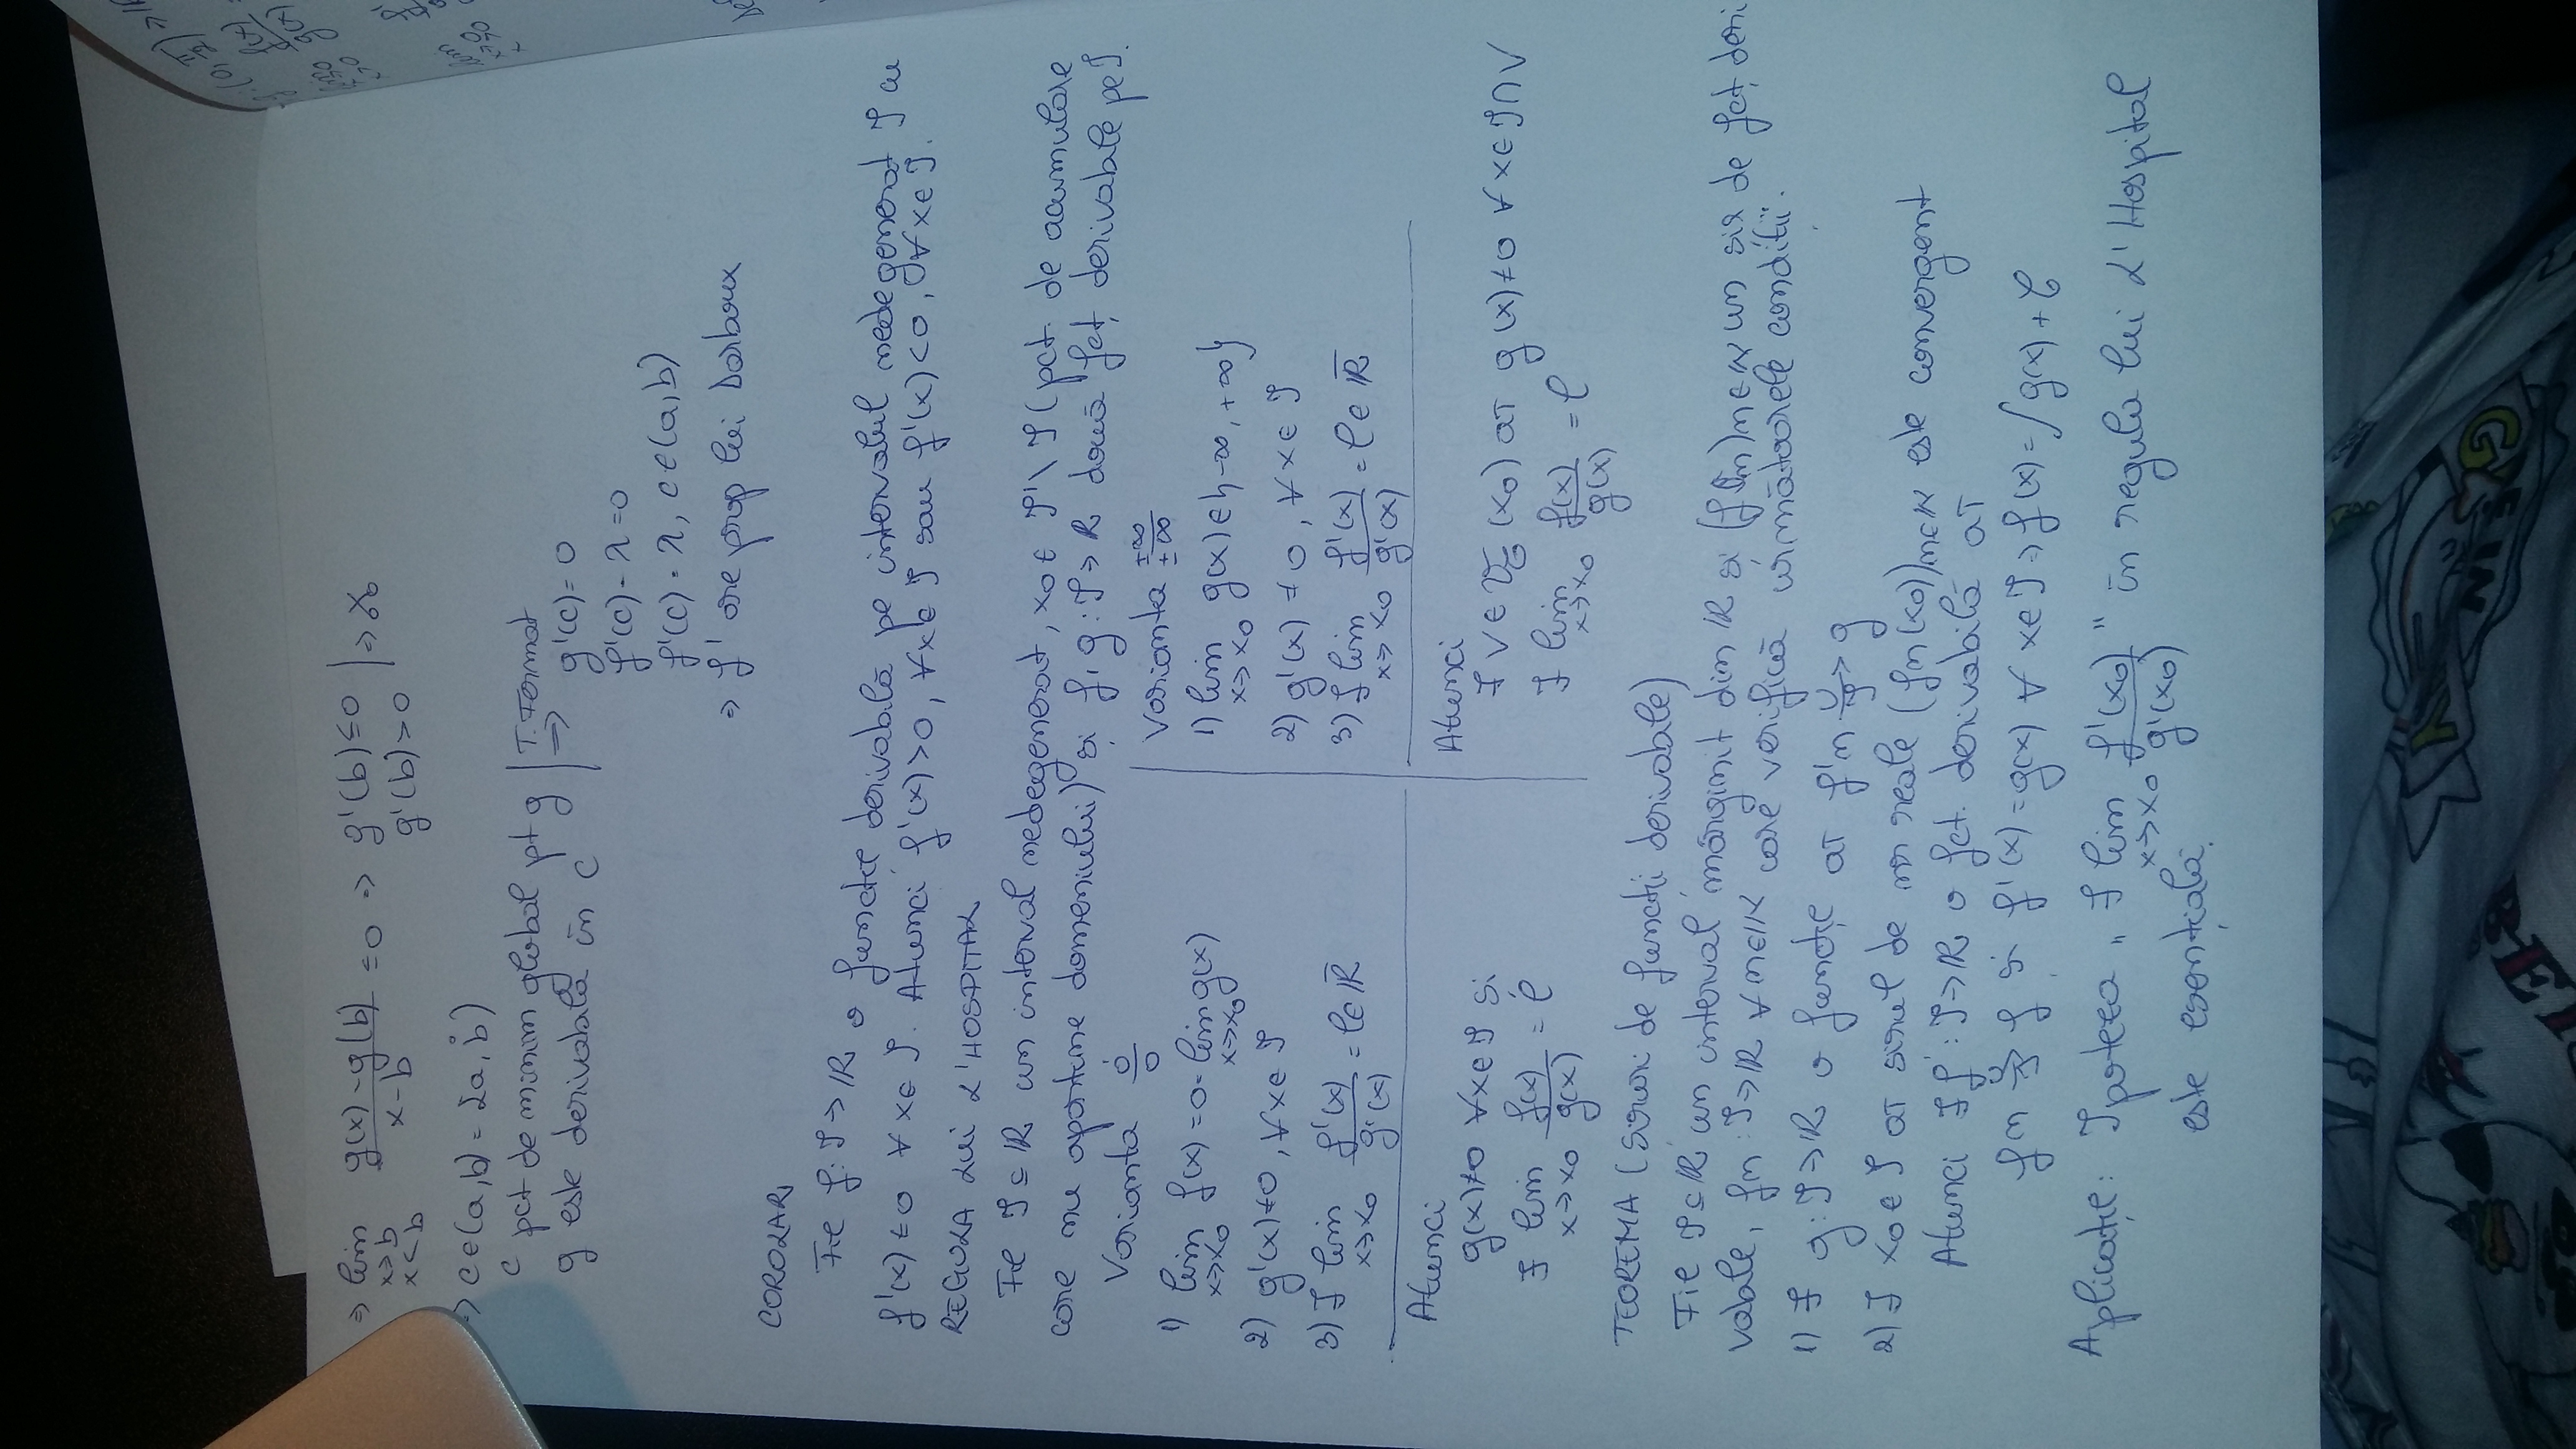 => lim x->b x<b g(x)-g(b)/x-b = 0 => g'(b) ≤ 0 | => X
g'(b) > 0
=> c ∈ (a,b) = [a,b]
c pct de minim global pt g | T.Fermat =>
g este derivabilă în c
g'(c) = 0
f'(c) - λ = 0
f'(c) = λ, c ∈ (a,b)
=> f' are prop lui Darboux
COROLAR
Fie f: J -> ℝ o funcție derivabilă pe intervalul nedegenerat J cu
f'(x) ≠ 0 ∀ x ∈ J. Atunci f'(x) > 0, ∀x ∈ J sau f'(x) < 0, ∀x ∈ J.
REGULA LUI L'HOSPITAL
Fie J ⊆ ℝ un interval nedegenerat, x₀ ∈ J' \ J (pct de acumulare
care nu aparține domeniului) și f, g: J -> ℝ două fct, derivabile pe J.
Varianta 0/0
1) lim x->x₀ f(x) = 0 = lim x->x₀ g(x)
2) g'(x) ≠ 0, ∀x ∈ J
3) ∃ lim x->x₀ f'(x)/g'(x) = l ∈ ℝ̅
Atunci
g(x) ≠ 0 ∀x ∈ J si
∃ lim x->x₀ f(x)/g(x) = l
Varianta ±∞/±∞
1) lim x->x₀ g(x) ∈ {-∞, +∞}
2) g'(x) ≠ 0, ∀x ∈ J
3) ∃ lim x->x₀ f'(x)/g'(x) = l ∈ ℝ̅
Atunci
∃ V ∈ (x₀) aî g(x) ≠ 0 ∀ x ∈ J ∩ V
∃ lim x->x₀ f(x)/g(x) = l
TEOREMA (siruri de functii derivabile)
Fie J ⊆ ℝ un interval mărginit din ℝ și (fn)n∈ℕ un șir de fct, deri
vabile, fn: J -> ℝ ∀ n∈ℕ care verifică următoarele condiții.
1) ∃ g: J -> ℝ o funcție aî f'n u-> g
2) ∃ x₀ ∈ J aî sirul de nr reale (fn(x₀))n∈ℕ este convergent
Atunci ∃ f: J -> ℝ o fct. derivabilă aî
fn u-> f și f'(x) = g(x) ∀ x∈J => f(x) = ∫g(x) + C
Aplicație: Ipoteza „ ∃ lim x->x₀ f'(x₀)/g'(x₀) " în regula lui L'Hospital
este esențială.